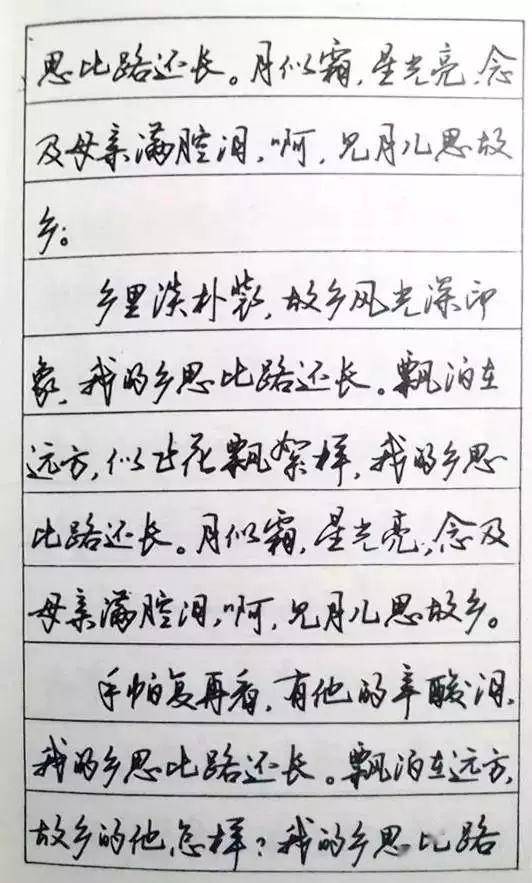 思比路还长。月似霜,星光亮,念
及母亲满腔泪,啊,见月儿思故
乡。
乡里淡朴装,故乡风光深印
象,我的乡思比路还长。飘泊在
远方,似花飘絮样,我的乡思
比路还长。月似霜,星光亮,念及
母亲满腔泪,啊,见月儿思故乡。
手帕复再看,有他的辛酸泪,
我的乡思比路还长。飘泊在远方,
故乡的他,怎样?我的乡思比路